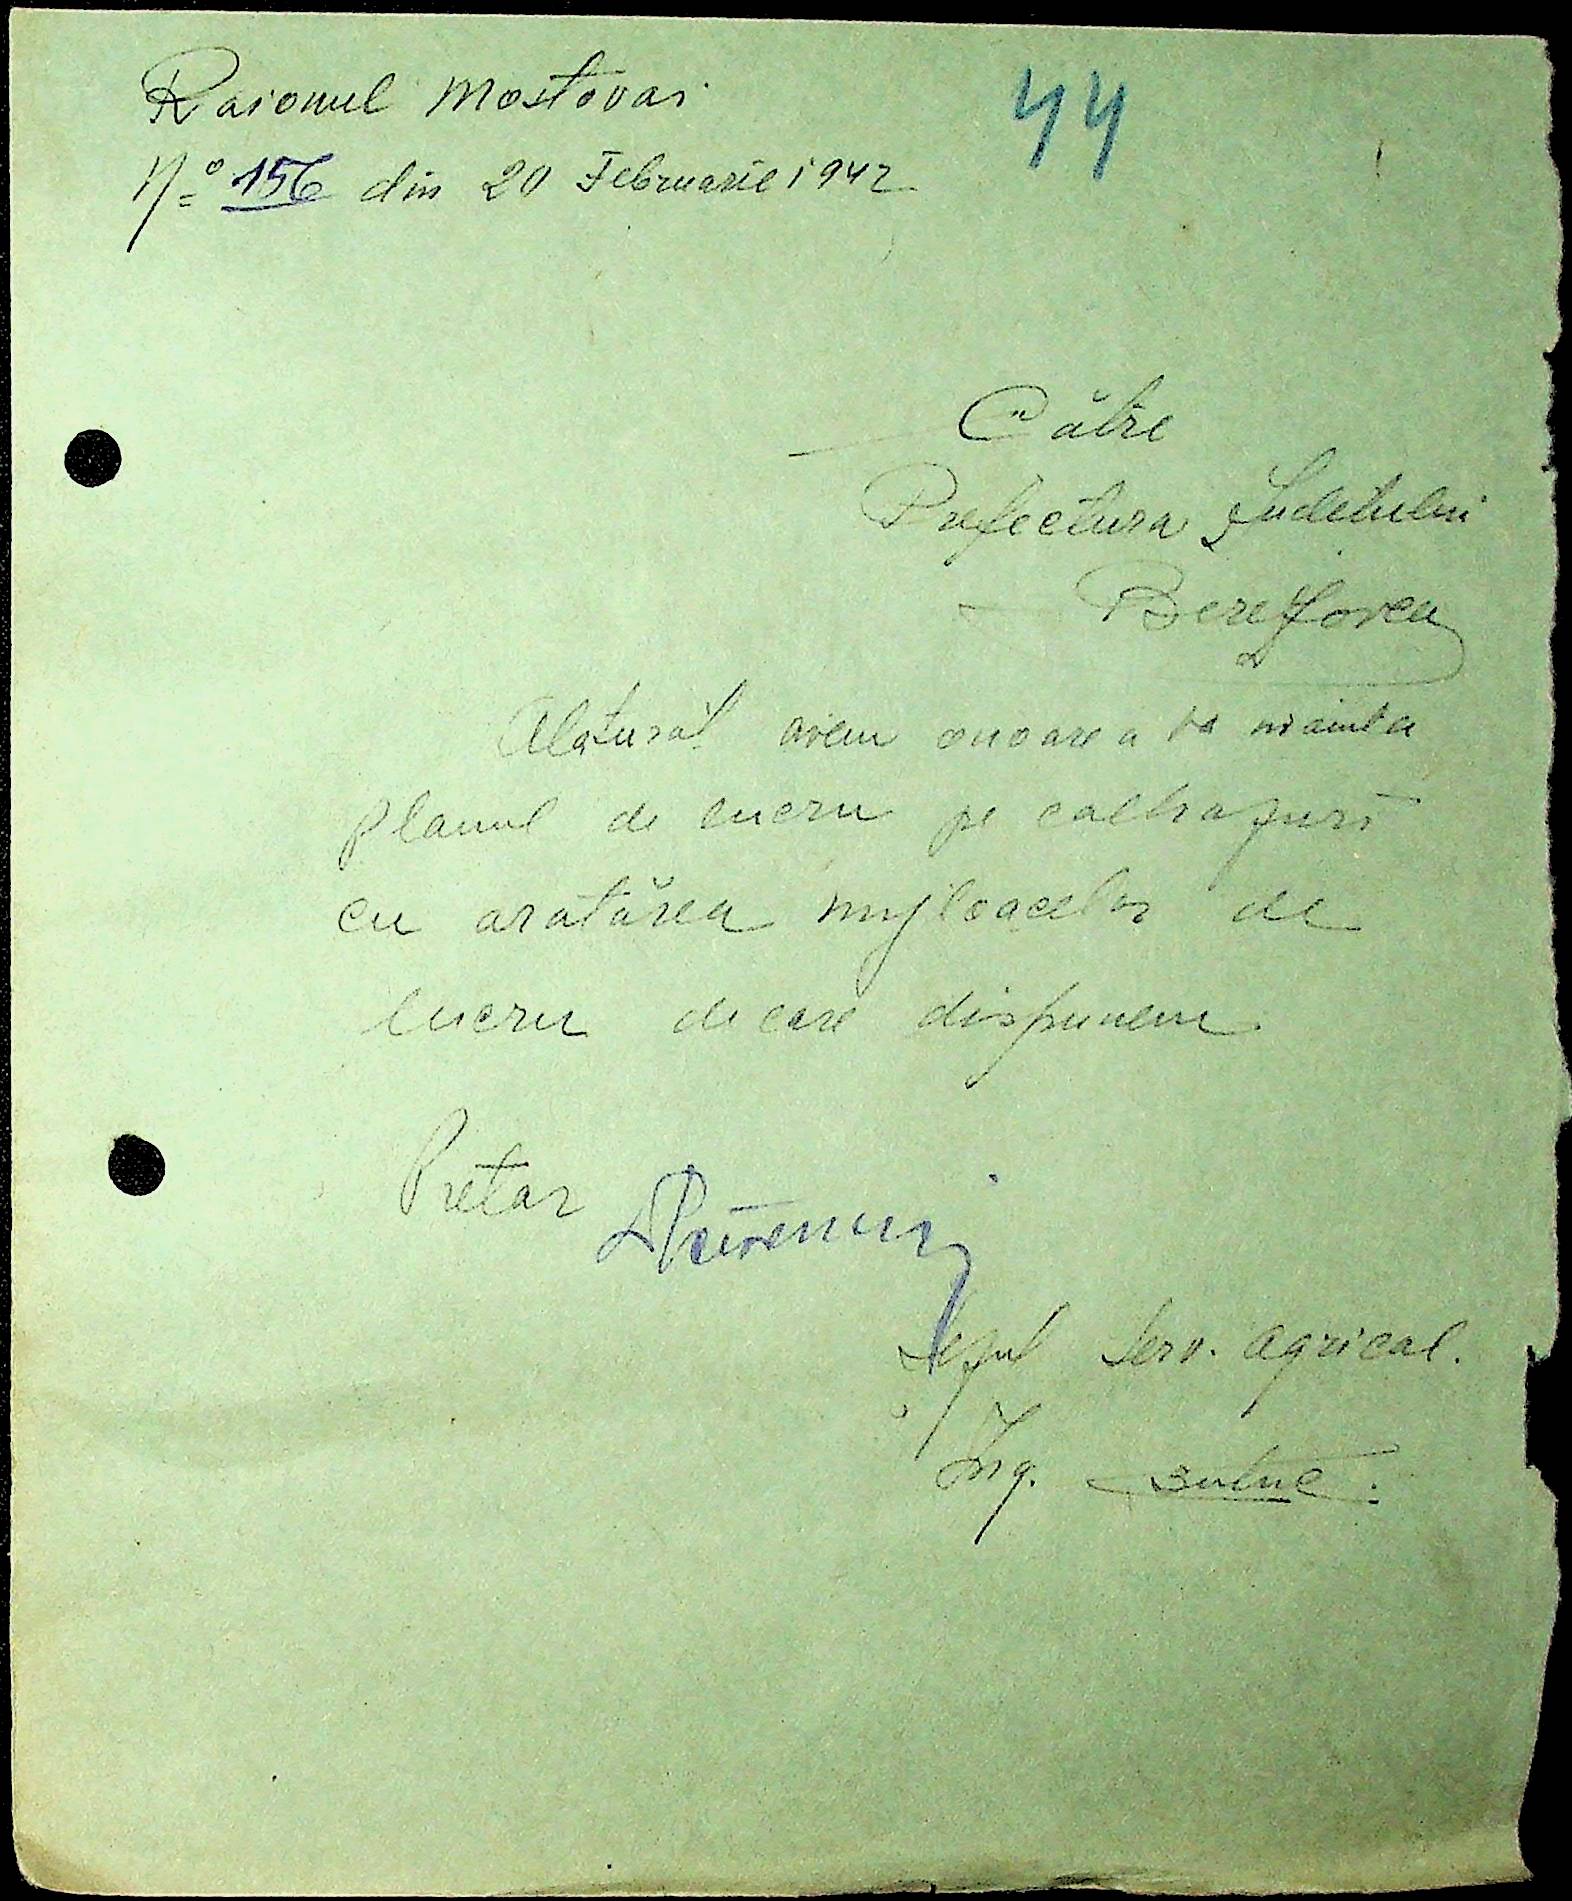 Raionul Mostovoi
44
Nº 156 din 20 Februarie 1942
Către
Prefectura Judetului
Berezovca
Alaturat avem onoare a va nainta
planul de lucru pe colhozuri
cu aratărea mijloacelor de
lucru de care dispunem
Pretor
Șeful Serv. Agricol.
Ing.